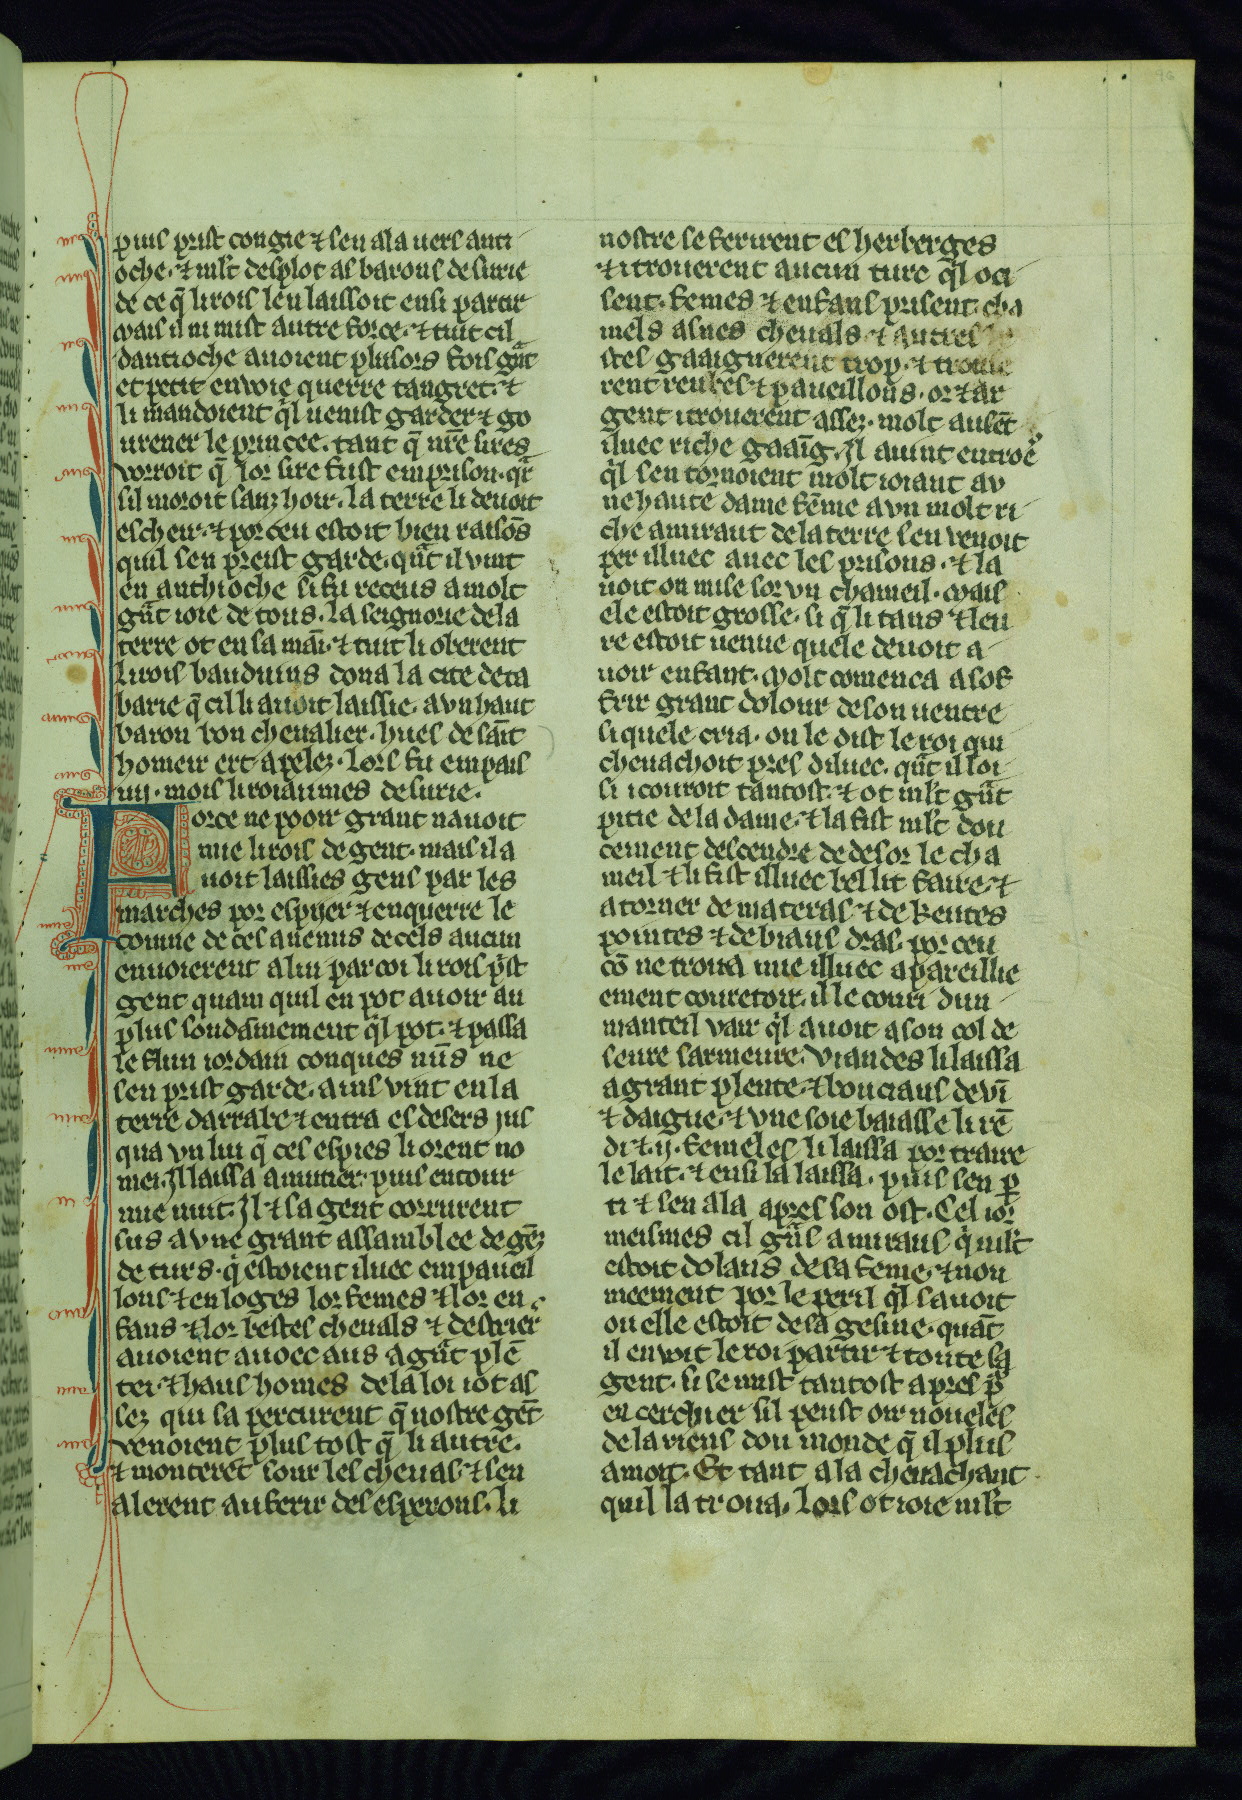 puis prist congie ⁊ sen ala uers anti
oche. ⁊ ml't desplot as barons de surie
de ce q̄ li rois len laissoit ensi partir
Mais il ni mist autre force. ⁊ tuit cil
dantioche auoient plusors fois g̃nt
et petit enuoie querre tangret. ⁊
li mandoient q̃l uenist garder ⁊ go
urener le princee. tant q̄ nr̄e sires
vorroit q̄ lor sire fust em prison. q̃r
sil moroit sanz hoir. la terre li deuoit
escheir. ⁊ por ceu estoit bien raisōs
quil sen preist garde. qũt il vint
en anthioche si fu receus a molt
gũt ioie de tous. la seignorie de la
terre ot en sa maī. ⁊ tuit li oberent
Li rois bauduins dona la cite de ta
barie q̄ cil li auoit laissie. a vn haut
baron bon cheualier. hues de saīt
homeir ert apelez. lors fu em pais
iiij. mois li roiaumes de surie.
Force ne pooir grant nauoit
mie li rois de gent. mais il a
uoit laissies gens par les
marches por espyer ⁊ enquerre le
conuie de ces auenus de cels aucun
enuoierent a lui par coi li rois p̃st
gent quam quil en pot auoir au
plus soudaīnement q̃l pot. ⁊ passa
le flun iordain conques nūs ne
sen prist garde. ains vint en la
terre darrabe ⁊ entra es desers jus
qua vn lui q̄ ces espies li orent no
mei. Il laissa amutier. puis entour
mie nuit. Il ⁊ sa gent corrurent
sus a vne grant assamblee de gēz
de turs. q̃ estoient iluec em paueil
lons ⁊ en loges lor femes ⁊ lor en
fans ⁊ lor bestes cheuals ⁊ destrier
auoient auoec aus a gũt plē
tei. ⁊ haus homes de la loi i ot as
sez qui sa percurent q̄ nostre gēt
venoient plus tost q̄ li autre.
⁊ monterēt sour les cheuas. ⁊ sen
alerent au ferir des esperons. li
nostre se ferirent es herberges
⁊ i trouerent aucun turc q̃l oci
sent. femes ⁊ enfans prisent. cha
mels asnes cheuals. ⁊ autres
stes gaaignerent trop. ⁊ trouue
rent reubes ⁊ paueillons. or ⁊ ar
gent i trouerent assez. molt ausēt
illuec riche gaaīg. Il auint entroe
q̃l sen tornoient molt ioiant av
ne haute dame fēme a vn molt ri
che amiraut de la terre sen venoit
per illuec auec les prisons. ⁊ la
uoit on mise sor vn chameil. Mais
ele estoit grosse. si q̄ li tans ⁊ leu
re estoit uenue quele deuoit a
uoir enfant. Molt comenca a sof
frir grant dolour de son uentre
si quele cria. ou le oist le roi qui
cheuachoit pres diluec. qũt il loi
si i couroit tantost. ⁊ ot ml't gũt
pitie de la dame. ⁊ la fist ml't dou
cement descendre de desor le cha
meil ⁊ li fist illuec bel lit faire. ⁊
atorner de materas ⁊ de keutes
pointes ⁊ de biaus dras. por ceu
cō ne troua mie illuec apareillie
ement couretoir. il le couri dun
manteil vair q̃l auoit a son col de
seure sarmeure. Viandes li laissa
a grant plente. ⁊ bouciaus de vī
⁊ daigue. ⁊ vne soie baiasse li rē
di ⁊ .ij. femeles li laissa por traire
le lait. ⁊ ensi la laissa. puis sen p̱
ti ⁊ sen ala apres son ost. Cel ior
meismes cil gñs amiraus q̃ ml't
estoit dolans de sa feme. ⁊ nou
meement por le peril q̃l sauoit
ou elle estoit de sa gesine. quāt
il en voit le roi partir ⁊ toute sa
gent. si se mist tantost apres p̃
en cerchier sil peust oir noueles
de la riens dou monde q̄ il plus
amoit. Et tant ala cheuachant
quil la troua. lors ot ioie ml't